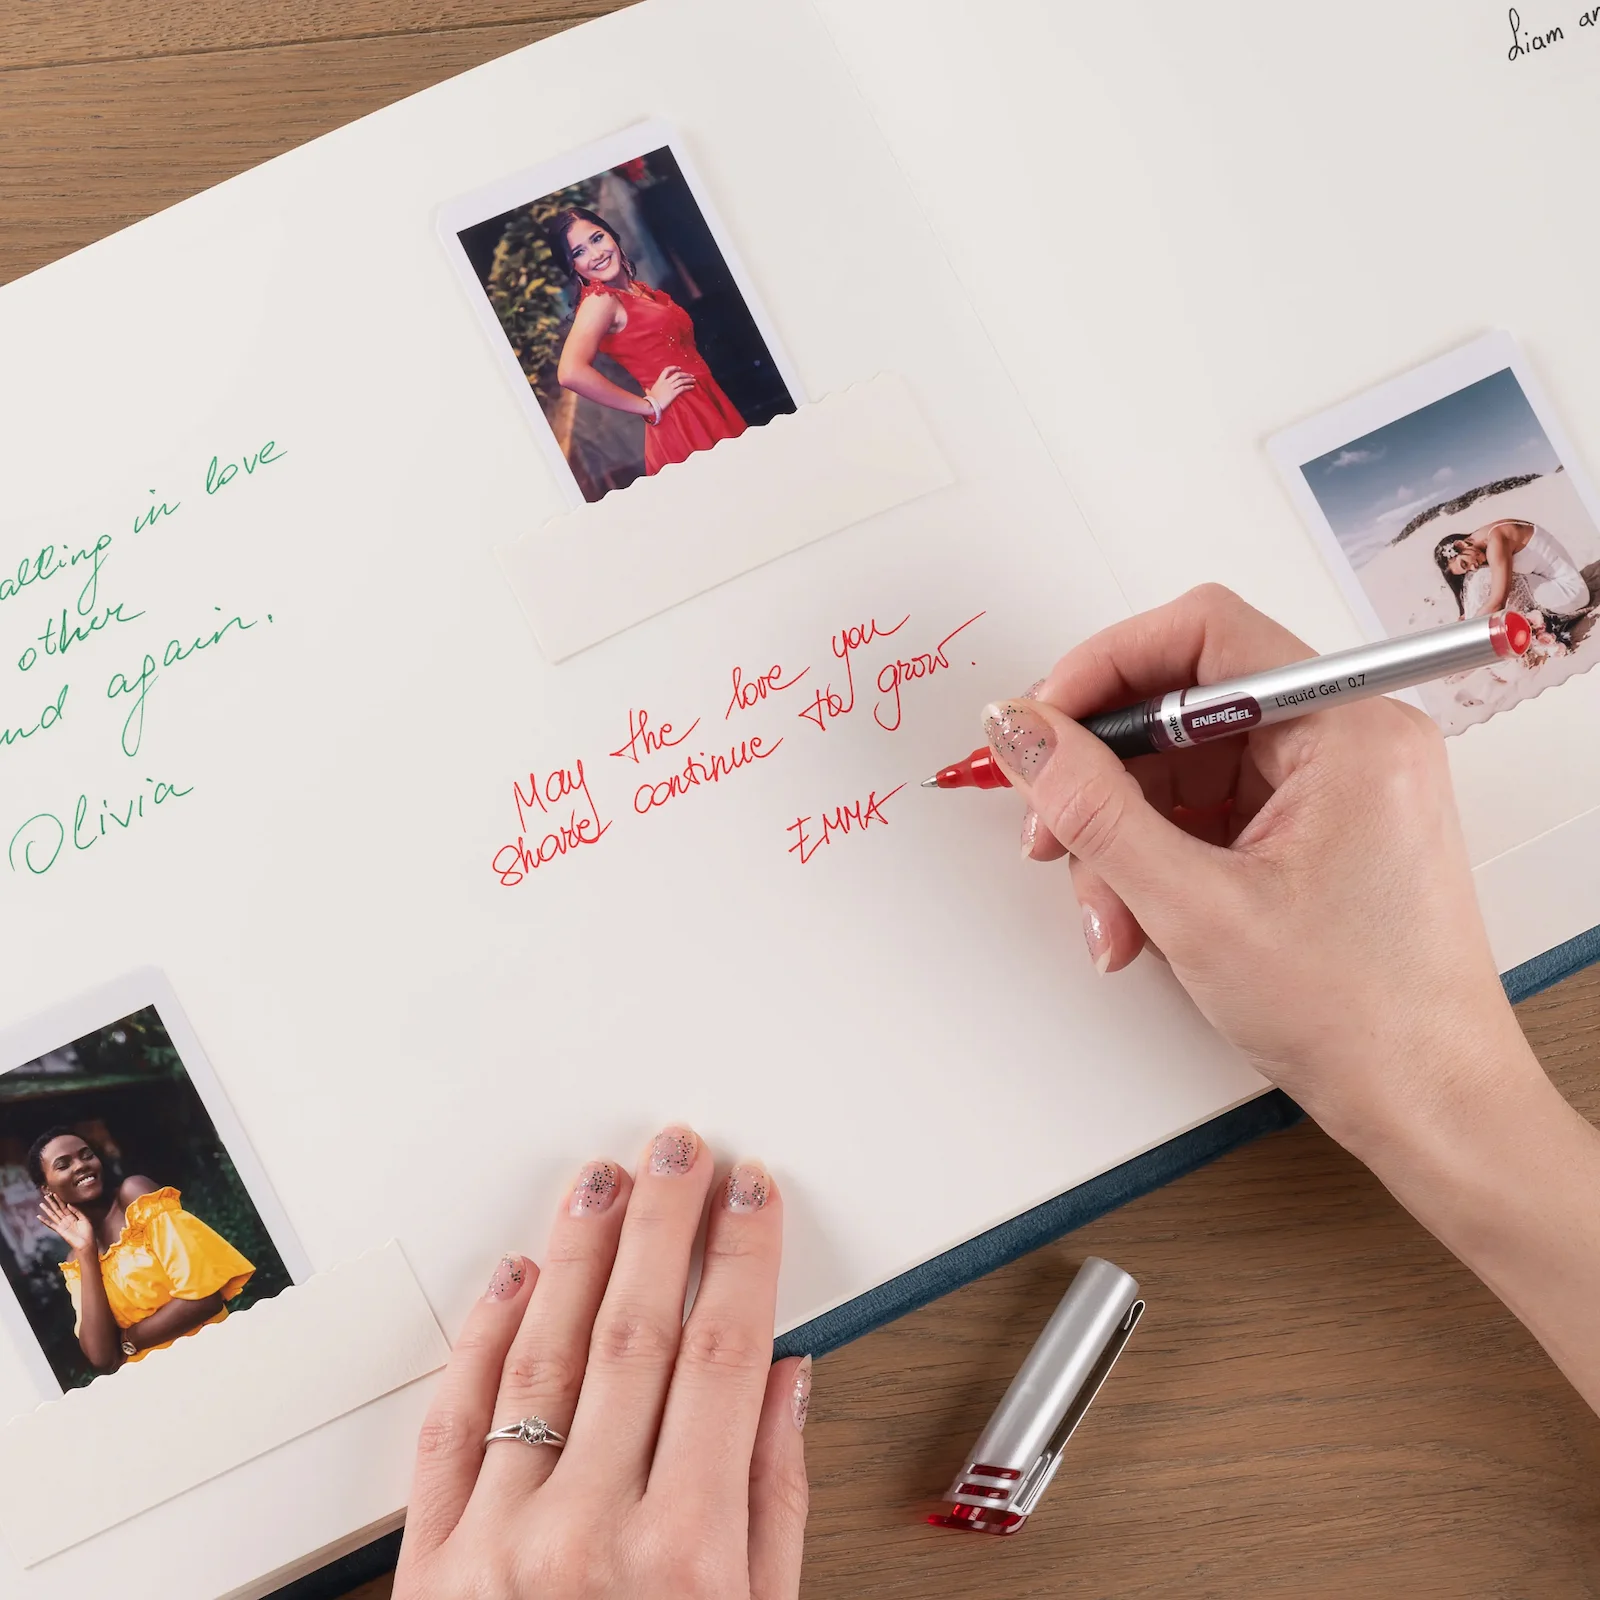 Liam
alling in love
other
nd again.
Olivia
May the love you
share continue to grow.
EMMA
Pentel ENERGEL Liquid Gel 0.7